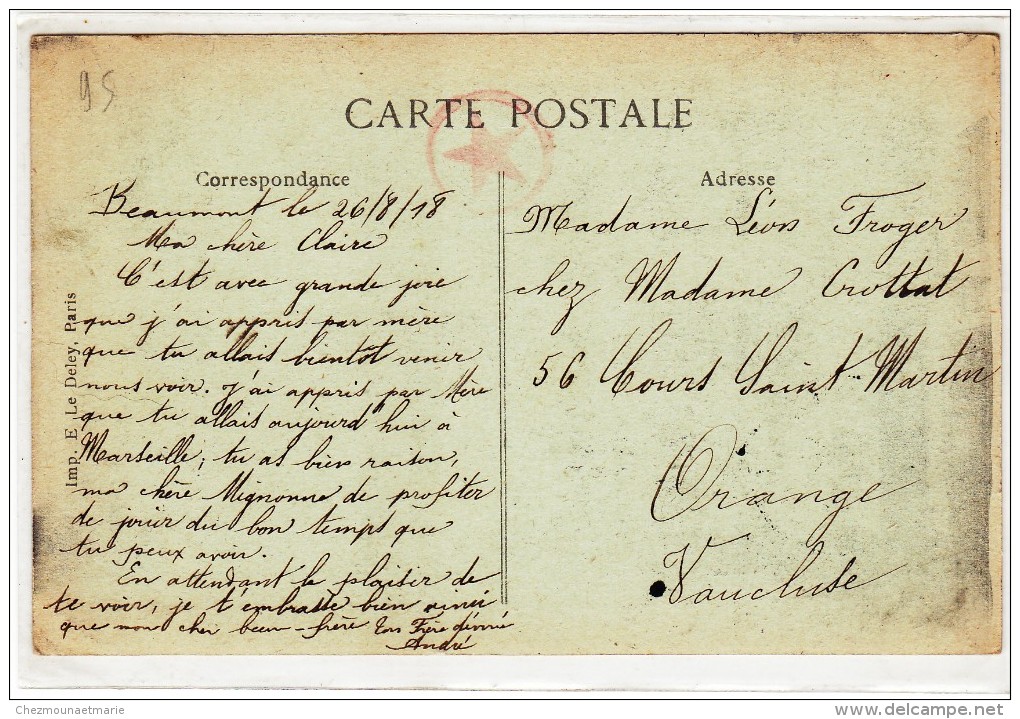 95
CARTE POSTALE
Correspondance
Adresse
Beaumont le 26/8/18
Ma chère Claire
C'est avec grande joie
que j'ai appris par mère
que tu allais bientôt venir
nous voir. J'ai appris par Mère
que tu allais aujourd'hui à
Marseille; tu as bien raison,
ma chère Mignonne de profiter
de jouir du bon temps que
tu peux avoir.
En attendant le plaisir de
te voir, je t'embrasse bien ainsi
que mon cher beau-frère Ton Frère dévoué
André
Madame Léon Froger
chez Madame Crottat
56 Cours Saint Martin
Orange
Vaucluse
Imp. E Le Deley, Paris
Chezmounaetmarie
www.delcampe.net